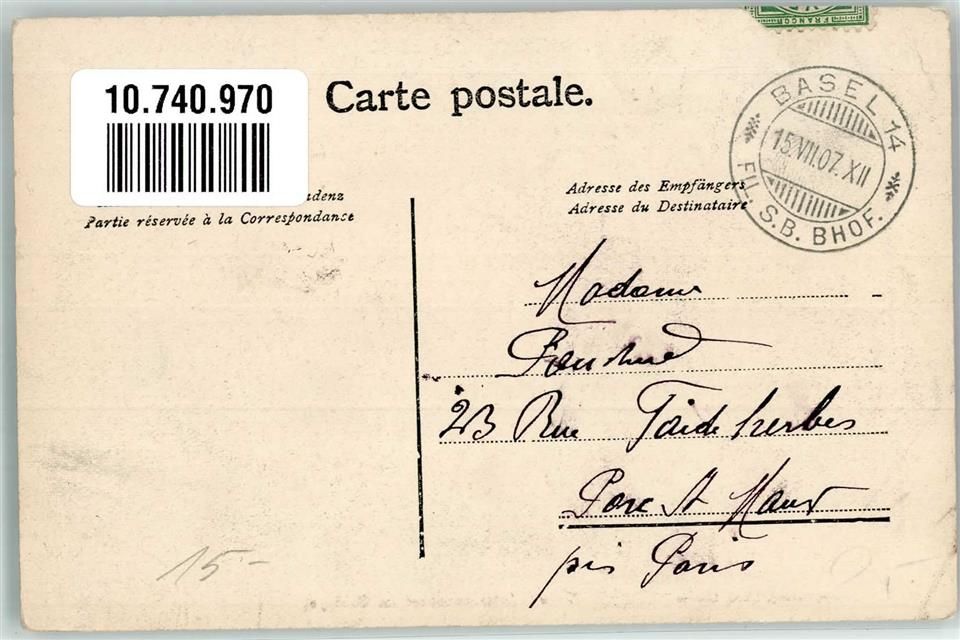 FRANCO
10.740.970
Carte postale.
BASEL 14
15.VII.07.XII
FIL. S.B. BHOF.
Partie réservée à la Correspondance
Adresse des Empfängers
Adresse du Destinataire
Madame
23 Rue
Parc St Maur
près Paris
15-